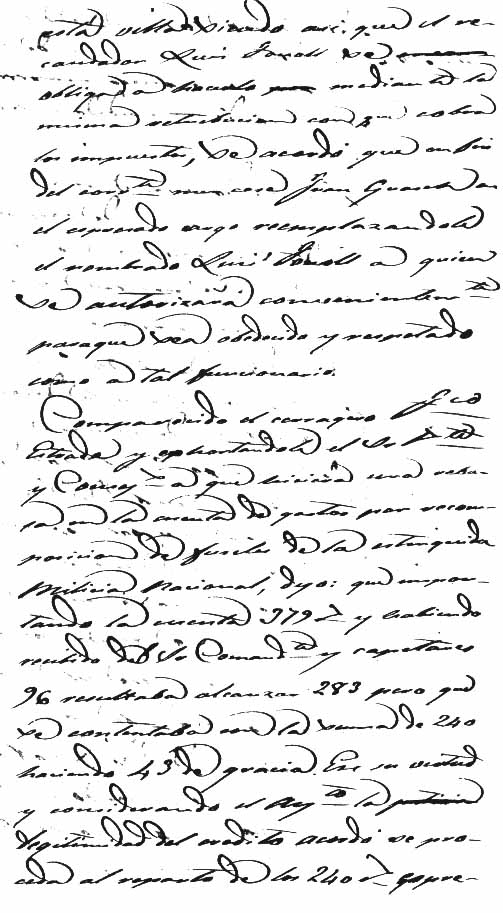 esta villa siendo asi que el re-
caudador Luis Tonoll se
obliga a hacerlo mediante la
misma retribucion con que cobra
los impuestos, se acordó que en fin
del corr.te mes cese Juan Guasch en
el espresado cargo reemplazandole
el nombrado Luis Tonoll a quien
se autorizará convenientem.te
paraque sea obedecido y respetado
como a tal funcionario.
Comparecido el cerragero Fco
Estrada y exhortandole el Sr. P.te
y Consej.s a que hiciera una reba-
ja en la cuenta de gastos por recom-
posicion de fusiles de la estinguida
Milicia Nacional, dijo: que impor-
tando la cuenta 379 r.s y habiendo
recibido del Sr Comand.te y capitanes
96 resultaba alcanzar 283 pero que
se contentaba con la suma de 240
haciendo 43 de gracia. En su virtud
y considerando el Ay.to la
legitimidad del credito acordó se pro-
ceda al reparto de los 240 r.s espre-